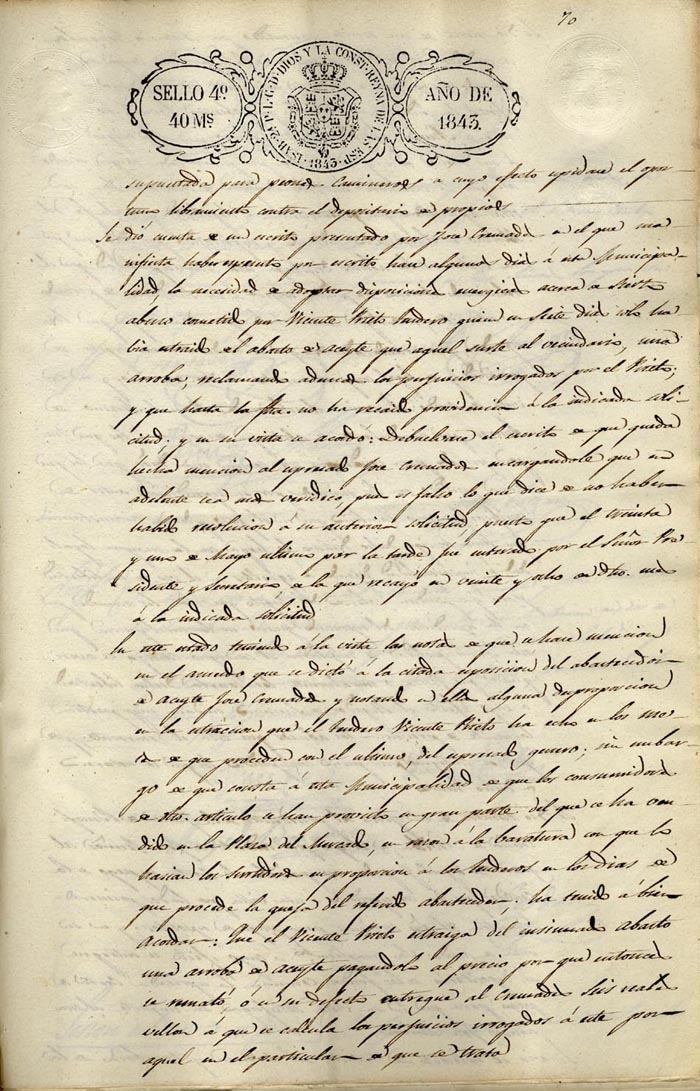 70
SELLO 4º
40 Ms
ISAB. 2ª P. L. G. D. DIOS Y LA CONST. REYNA DE LAS ESP. 1843.
AÑO DE
1843.
para peones Camineros a cuyo efecto espidase el opor-
tuno libramiento contra el depositario de propios
Se dió cuenta de un escrito presentado por Jose Cremades en el que ma-
nifiesta haber espuesto por escrito hace algunos dias á esta Municipa-
lidad, la necesidad de adoptar disposiciones energicas acerca de cierto
abuso cometido por Vicente Prieto tendero quien en Siete dias solo ha
bia estraido del abasto de aceyte que aquel surte al vecindario, una
arroba, reclamando ademas los perjuicios irrogados por el Prieto;
y que hasta la fha. no ha recaido providencia á la indicada soli-
citud. y en su vista se acordó: Debuelvase el escrito de que queda
hecha mencion al espresado Jose Cremades encargandole que en
adelante sea mas veridico pues es falso lo que dice de no haber
habido resolucion á su anterior solicitud puesto que el treinta
y uno de Mayo ultimo por la tarde fue enterado por el Señor Pre-
sidente y Secretario de la que recayó en veinte y ocho de dho. mes
á la indicada solicitud
En este estado teniendo á la vista las notas de que se hace mencion
en el acuerdo que se dictó á la citada esposicion del abastecedor
de aceyte Jose Cremades y notando en ella alguna desproporcion
en la estraccion que el tendero Vicente Prieto ha echo en los me-
ses de que proceden con el ultimo, del espresado genero; sin embar-
go de que consta á esta Municipalidad de que los consumidores
de dho. articulo se han provisto en gran parte del que se ha ven-
dido en la Plaza del Mercado, en razon á la baratura con que lo
hacian los surtidores en proporcion á los tenderos en los dias de
que procede la queja del referido abastecedor; ha tenido á bien
acordar: Que el Vicente Prieto estraiga del insinuado abasto
una arroba de aceyte pagandola al precio por que entonces
se remató, ó en su defecto entregue al Cremades Seis reales
vellon á que se calcula los perjuicios irrogados á este por
aquel en el particular de que se trata